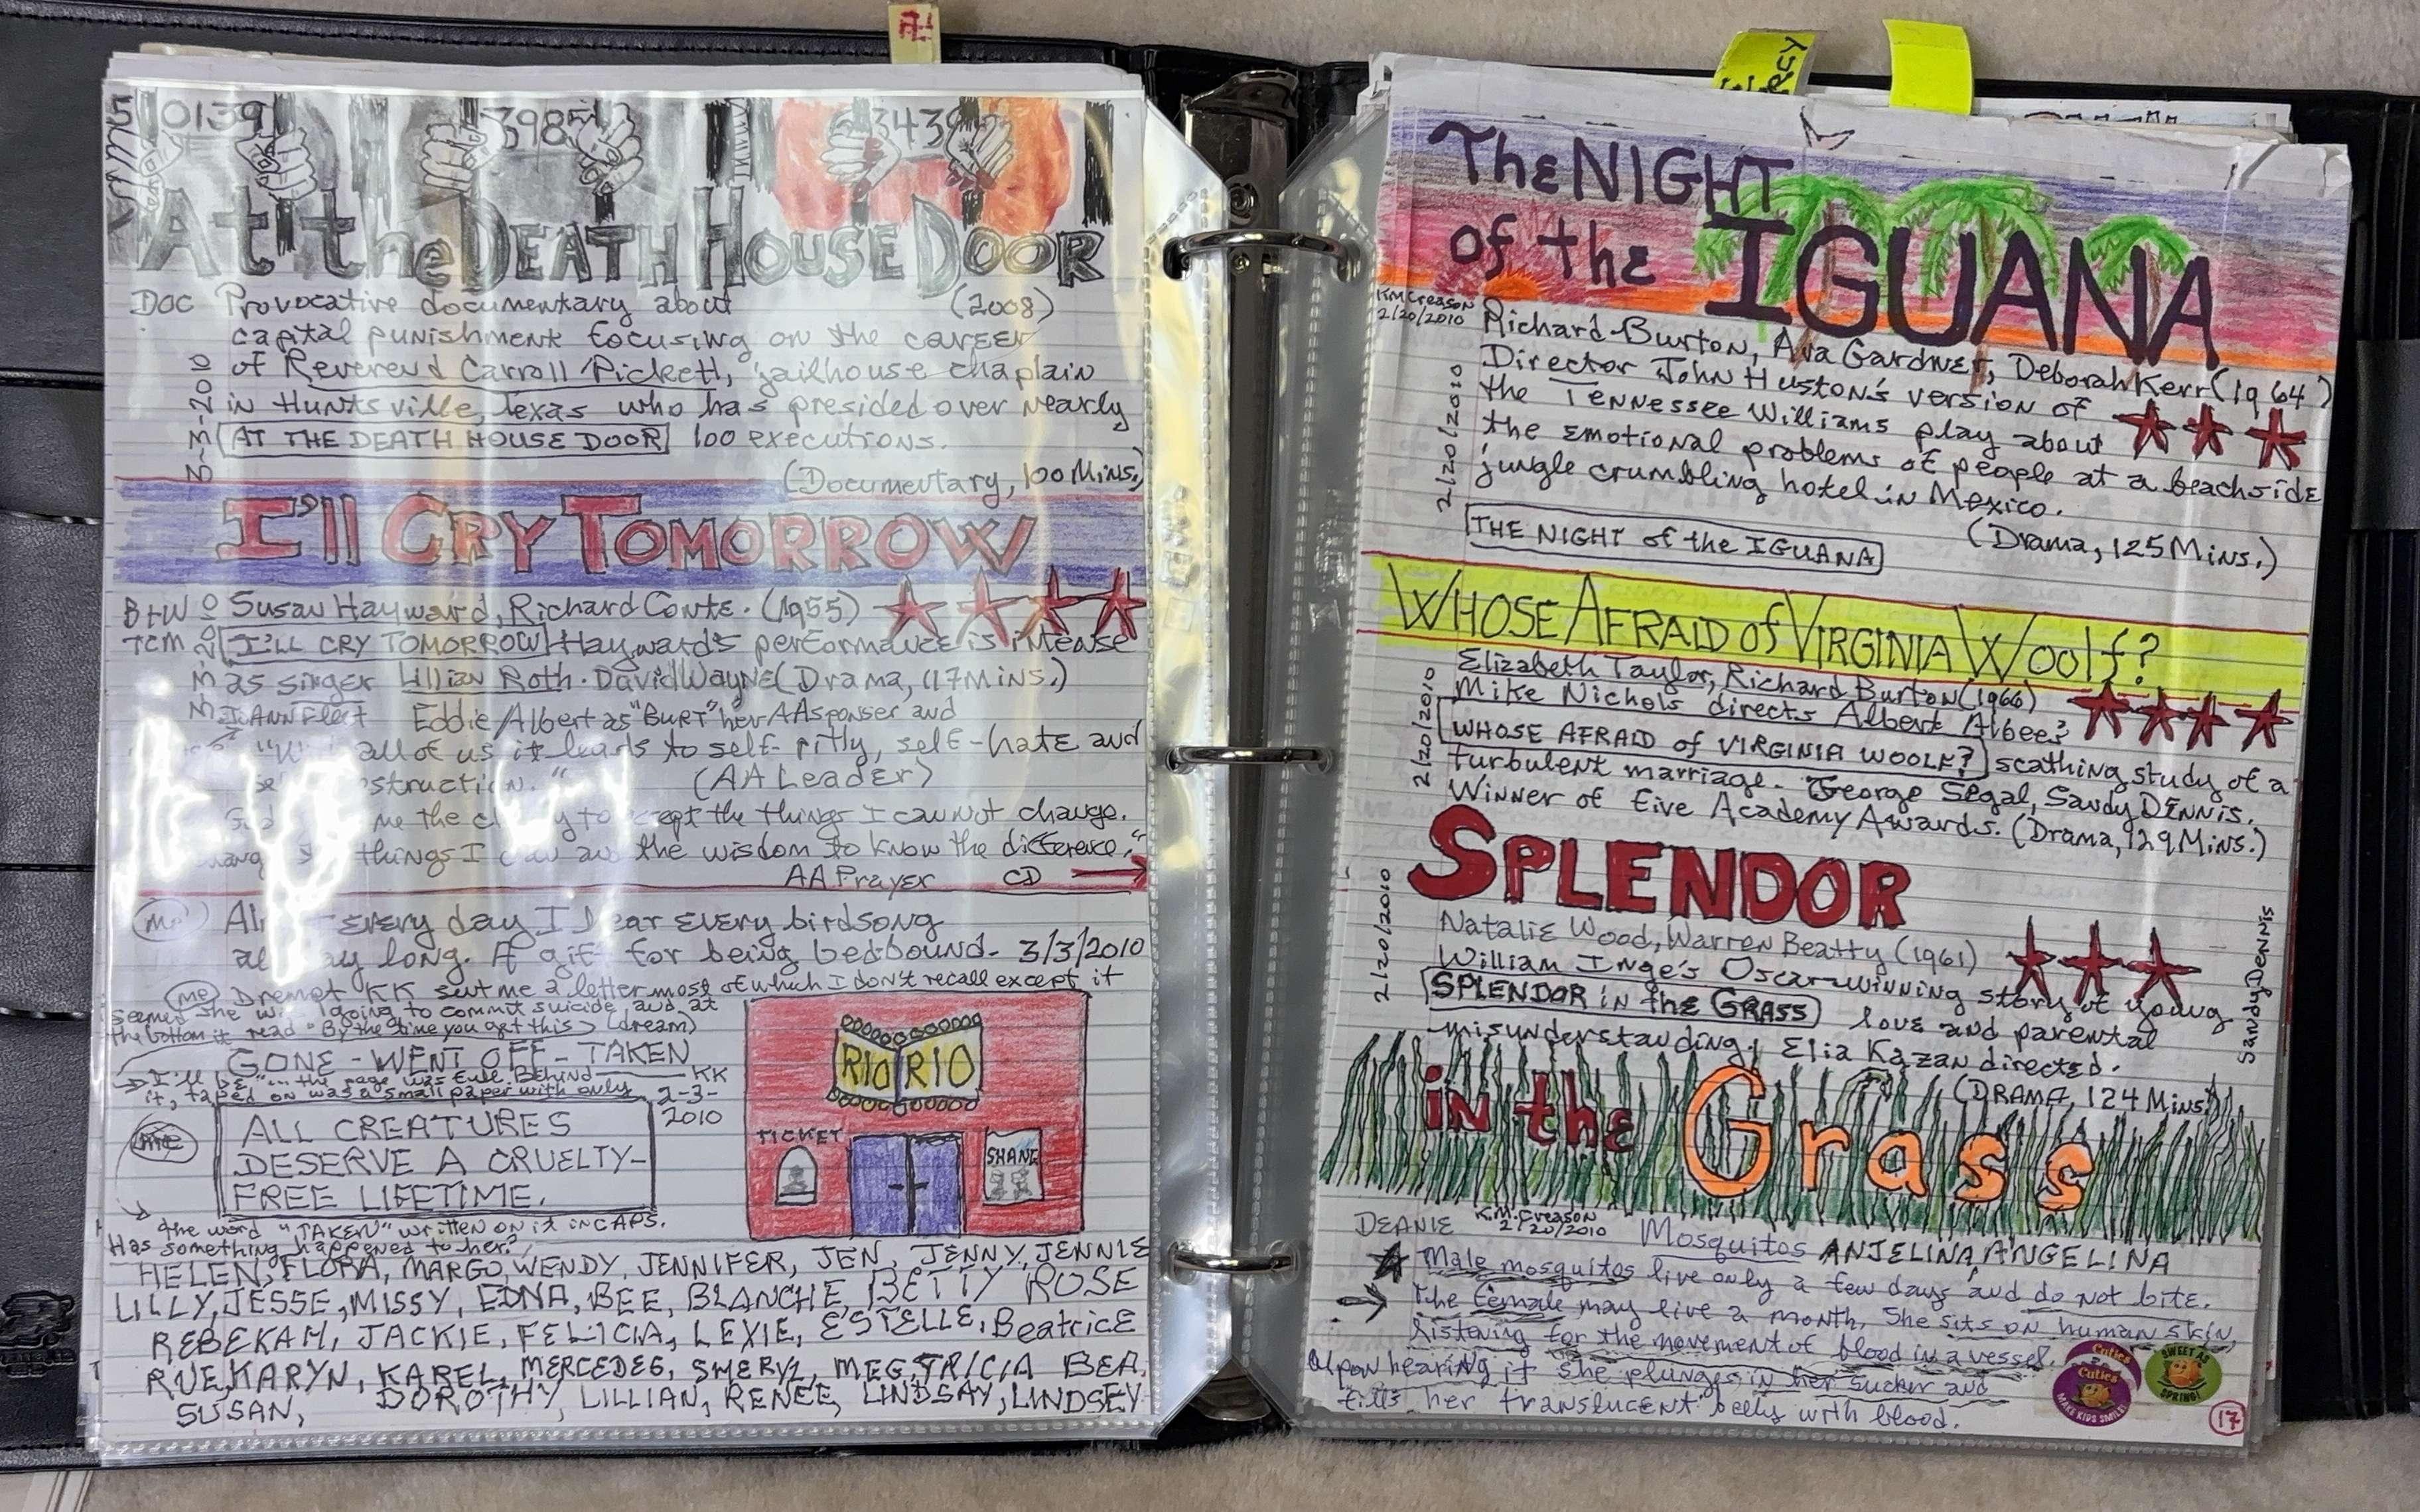 5 0139 3985 3439
At the DEATH HOUSE DOOR
DOC Provocative documentary about (2008)
capital punishment focusing on the career
of Reverend Carroll Pickett, jailhouse chaplain
in Huntsville, Texas who has presided over nearly
AT THE DEATH HOUSE DOOR 100 executions.
3-M-2010
(Documentary, 100 Mins.)
I'll CRY TOMORROW
B+W Susan Hayward, Richard Conte. (1955)
TCM I'LL CRY TOMORROW Hayward's performance is intense
as singer Lillian Roth. David Wayne (Drama, 117 Mins.)
Eddie Albert as "BURT" her AA sponser and
all of us it leads to self-pitty, self-hate and
(AA Leader)
me the to the things I cannot change.
things I can the wisdom to know the difference."
AA Prayer CD
every day I hear every birdsong
long. A gift for being bedbound. 3/3/2010
me Dremet KK sent me a letter most of which I don't recall except it
seemed she was going to commit suicide and at
the bottom it read "By the time you get this (dream)
GONE - WENT OFF - TAKEN
I'll be" ... the page was full Behind KK
it, taped on was a small paper with only 2-3-
2010
me ALL CREATURES
DESERVE A CRUELTY-
FREE LIFETIME.
RIO RIO
TICKET
SHANE
the word "TAKEN" written on it in CAPS.
Has something happened to her?
HELEN, FLORA, MARGO, WENDY, JENNIFER, JEN, JENNY, JENNIE
LILLY, JESSE, MISSY, EDNA, BEE, BLANCHE, BETTY ROSE
REBEKAH, JACKIE, FELICIA, LEXIE, ESTELLE, Beatrice
RUE, KARYN, KAREL, MERCEDES, SHERYL, MEG, TRICIA BEA,
SUSAN, DOROTHY, LILLIAN, RENEE, LINDSAY, LINDSEY
The NIGHT
of the IGUANA
KMCreason
2/20/2010
Richard Burton, Ava Gardner, Deborah Kerr (1964)
Director John Huston's version of
the Tennessee Williams play about
the emotional problems of people at a beachside
jungle crumbling hotel in Mexico.
2/20/2010
THE NIGHT of the IGUANA (Drama, 125 Mins.)
WHOSE AFRAID of VIRGINIA Woolf?
Elizabeth Taylor, Richard Burton (1966)
Mike Nichols directs Albert Albee's
WHOSE AFRAID of VIRGINIA WOOLF? scathing study of a
turbulent marriage. George Segal, Sandy Dennis.
Winner of five Academy Awards. (Drama, 129 Mins.)
2/20/2010
SPLENDOR
Natalie Wood, Warren Beatty (1961)
William Inge's Oscar-winning story of young
SPLENDOR in the GRASS love and parental
misunderstanding. Elia Kazan directed.
(DRAMA, 124 Mins.)
2/20/2010
Sandy Dennis
in the Grass
DEANIE K.M.Creason
2/20/2010
Mosquitos ANJELINA, ANGELINA
Male mosquitos live only a few days and do not bite.
The female may live a month, she sits on human skin,
listening for the movement of blood in a vessel.
Upon hearing it she plunges in her sucker and
fills her translucent belly with blood.
Cuties
Cuties
MAKE KIDS SMILE!
SWEET AS
SPRING!
17